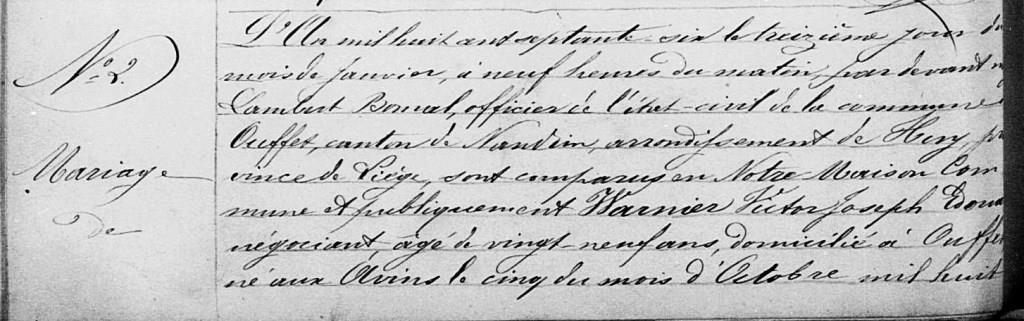 N° 2.
Mariage
de
L'An mil huit cent septante-six le treizième jour du
mois de Janvier, à neuf heures du matin, par devant
Lambert Bonal, officier de l'état-civil de la commune
Ouffet, canton de Nandrin, arrondissement de Huy, pro
vince de Liége, sont comparus en Notre Maison Com
mune et publiquement Warnier Victor Joseph Edoua
négociant, âgé de vingt-neuf ans, domicilié à Ouffet
né aux Avins le cinq du mois d'Octobre mil huit